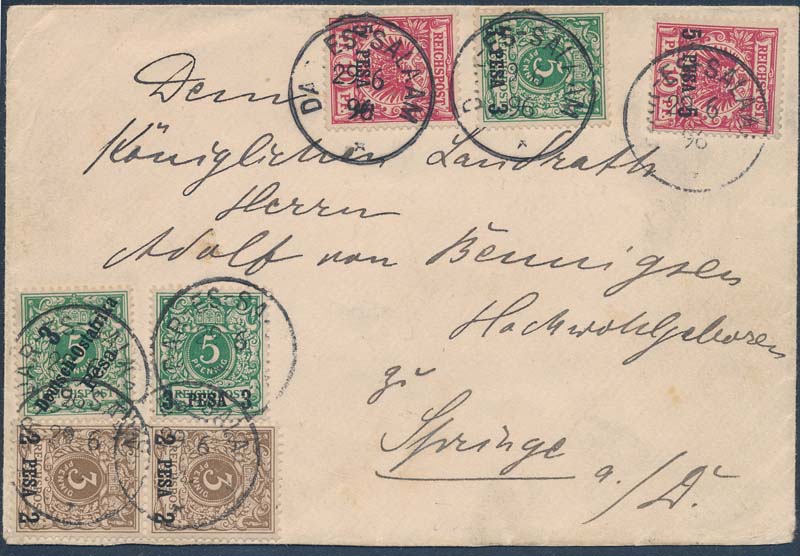 DAR-ES-SALAAM
29 6
96
REICHSPOST
5 PESA 5
DAR-ES-SALAAM
96
3 PESA 3
5
REICHSPOST
5 PESA 5
96
Dem
Königlichen Landrath
Herrn
Adolf von Bennigsen
Hochwohlgeboren
zu
Springe
a./D.
3
Deutsch-Ostafrika
Pesa
5
DAR-ES-SA
5
PFENNIG
REICHSPOST
3 PESA 3
2 PESA 2
3
PFENNIG
2 PESA 2
3
PFENNIG